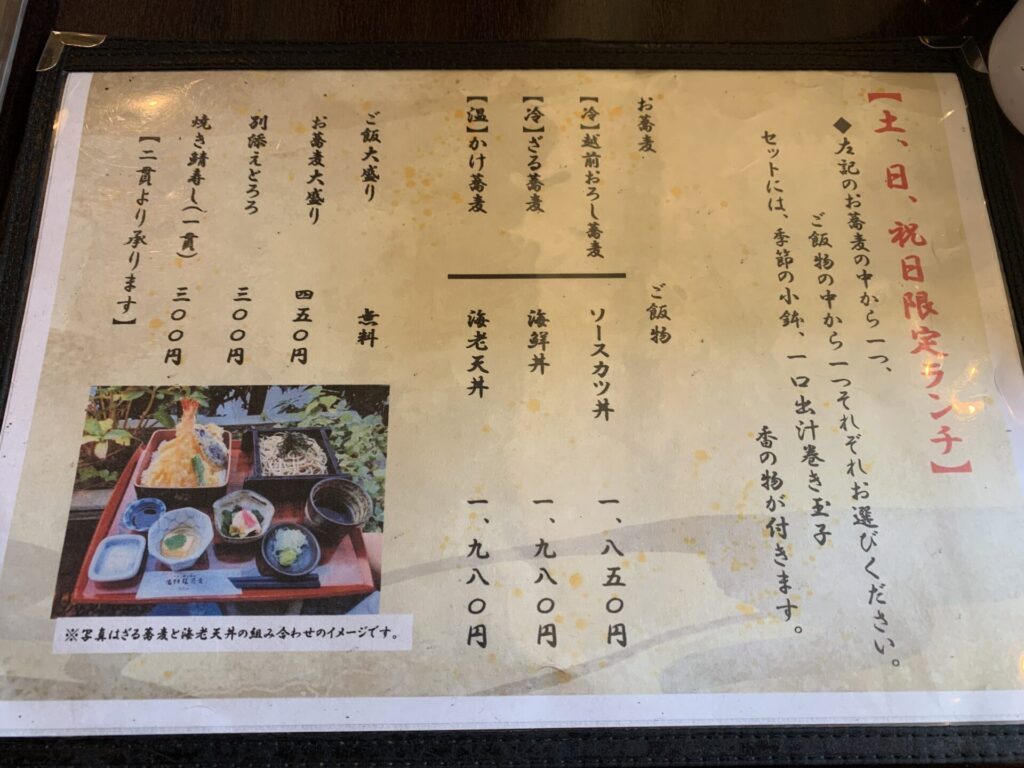 【土、日、祝日限定ランチ】
◆左記のお蕎麦の中から一つ、
ご飯物の中から一つそれぞれお選びください。
セットには、季節の小鉢、一口出汁巻き玉子
香の物が付きます。
お蕎麦
ご飯物
【冷】越前おろし蕎麦
ソースカツ丼
一、八五〇円
【冷】ざる蕎麦
海鮮丼
一、九八〇円
【温】かけ蕎麦
海老天丼
一、九八〇円
ご飯大盛り
無料
お蕎麦大盛り
四五〇円
別添えとろろ
三〇〇円
焼き鯖寿し(一貫)
三〇〇円
【二貫より承ります】
※写真はざる蕎麦と海老天丼の組み合わせのイメージです。